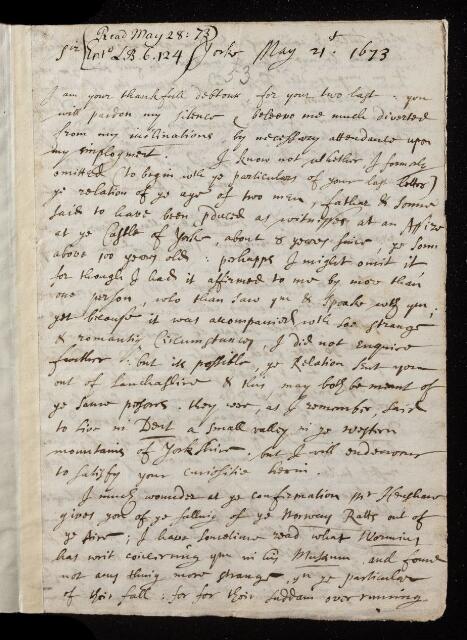 Read May 28: 73
Sir Ent^d L.B. 6. 124 Yorke May 21^t. 1673
53
I am your thankfull debtour for your two last. you
will pardon my silence & beleeve me much diverted
from my inclinations by necessary attendance upon
my employment. I know not whether I formerly
omitted (to begin with ye particulars of your last letter)
ye relation of ye age of two men, father & sonne
said to have been pduced as witnesses at an Assize
at ye Castle of Yorke, about 8 yeares since, ye sonn
above 100 years old: perhapps I might omit it
for though I had it affirmed to me by more than
one person, who than saw ym & spoake with ym;
yet because it was accompanied with soe strange
& romantiq Circumstances, I did not enquire
further: but itt possible, ye Relation sent you
out of Lancashire & this, may both be meant of
ye same persons. they were, as I remember, said
to live in Dent a small valley in ye western
mountains of Yorkshire. but I will endeavour
to satisfy your curiositie herin.
I much wounder at ye confirmation Mr Henshaw
gives you of ye falling of ye Norway Ratts out of
ye Aire; I have sometime read what Wormius
has writ concerning ym in his Musæum, and found
not any thing more strange, yn ye particular
of their fall: for for their suddain over running